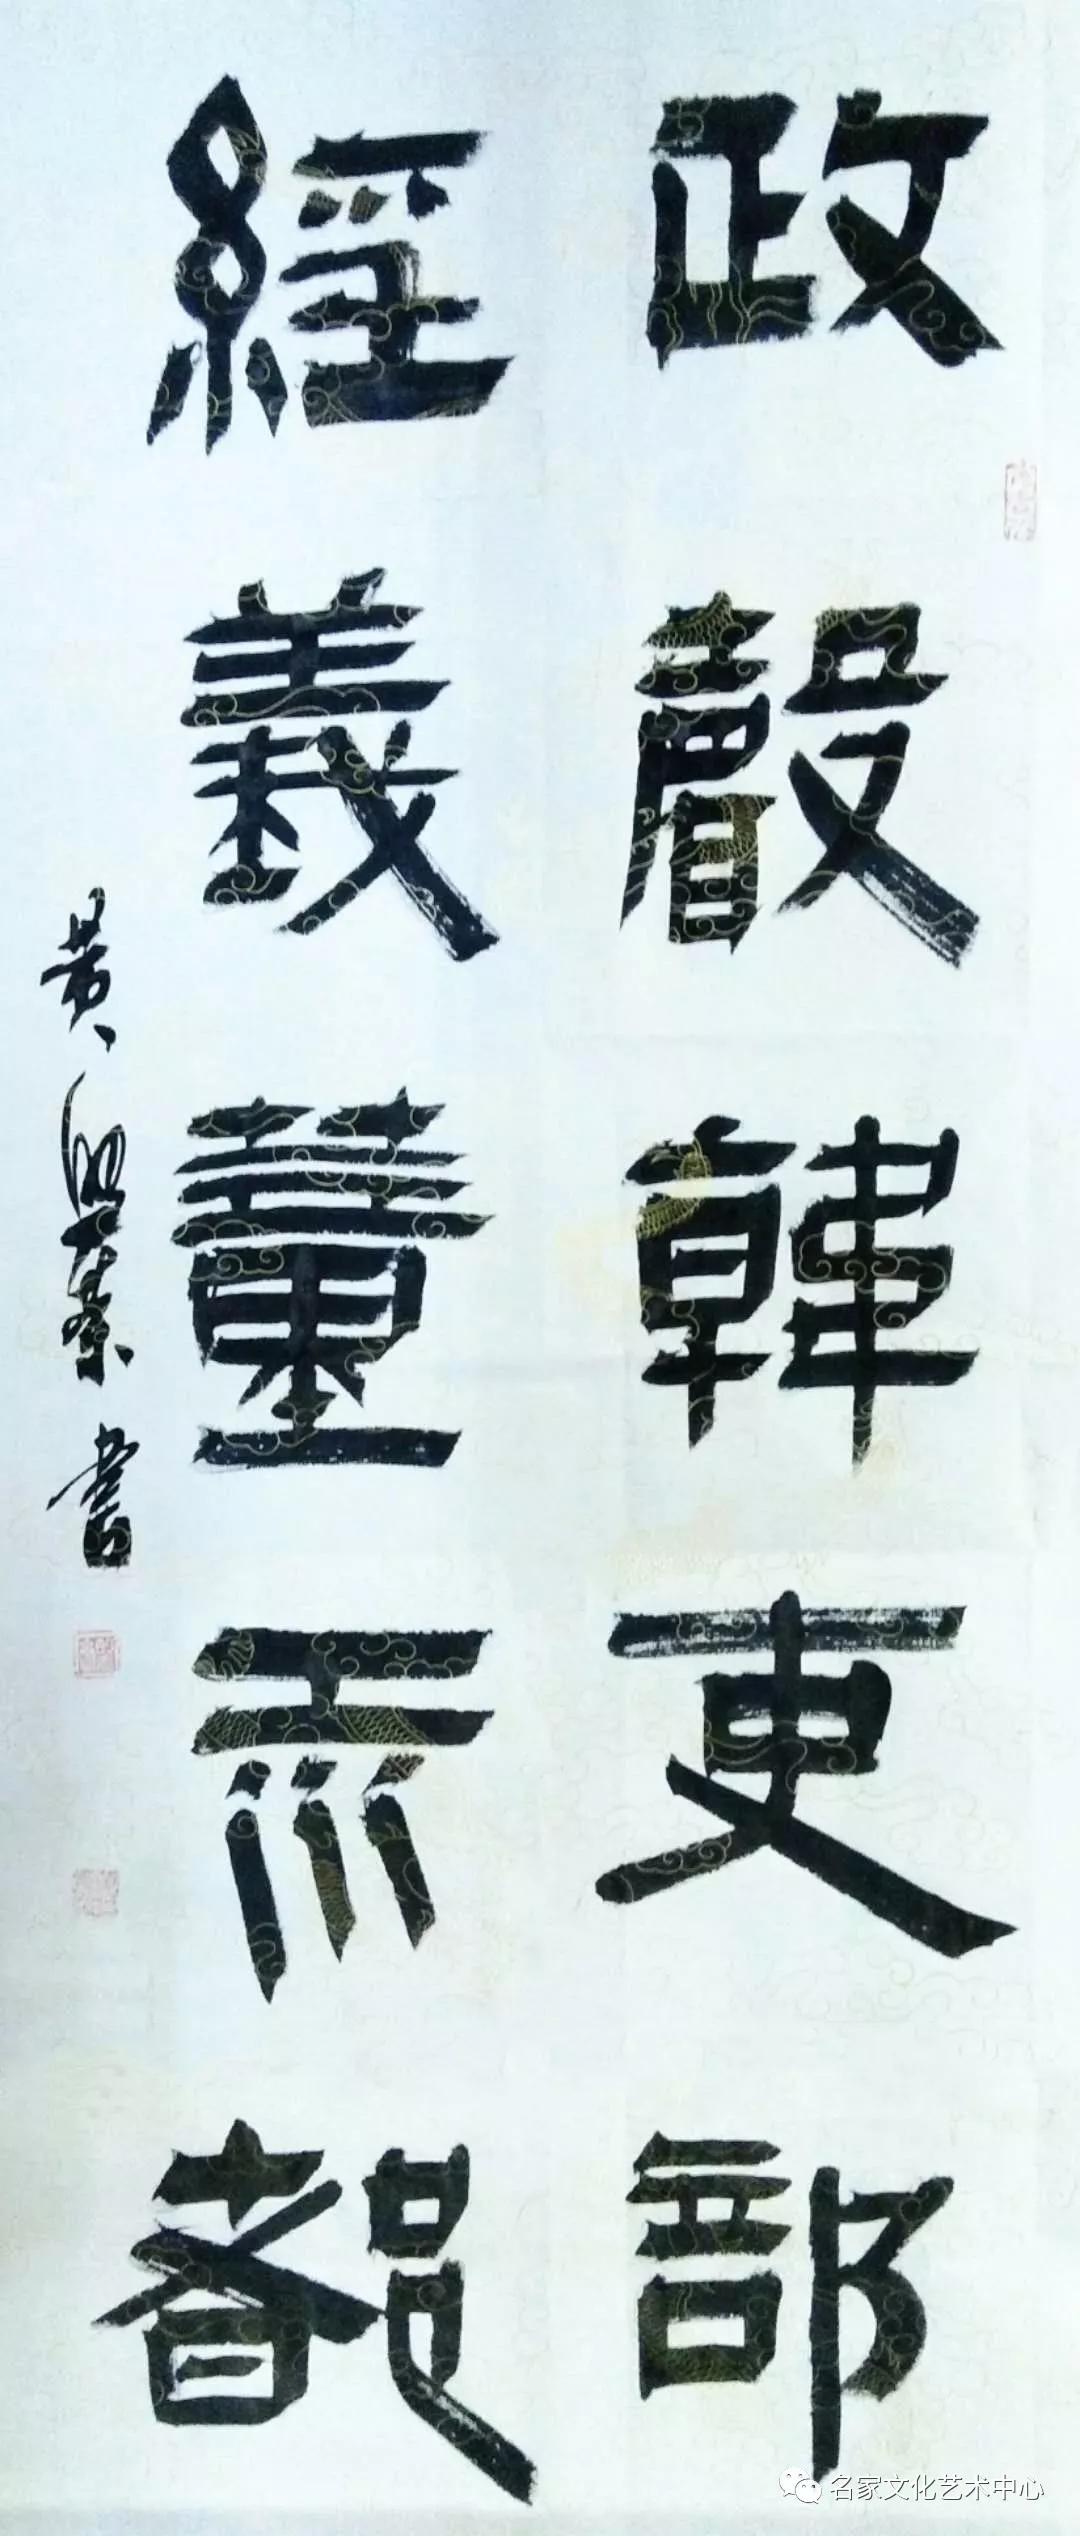 政聲韓吏部
經義董江都
黄 書
名家文化艺术中心